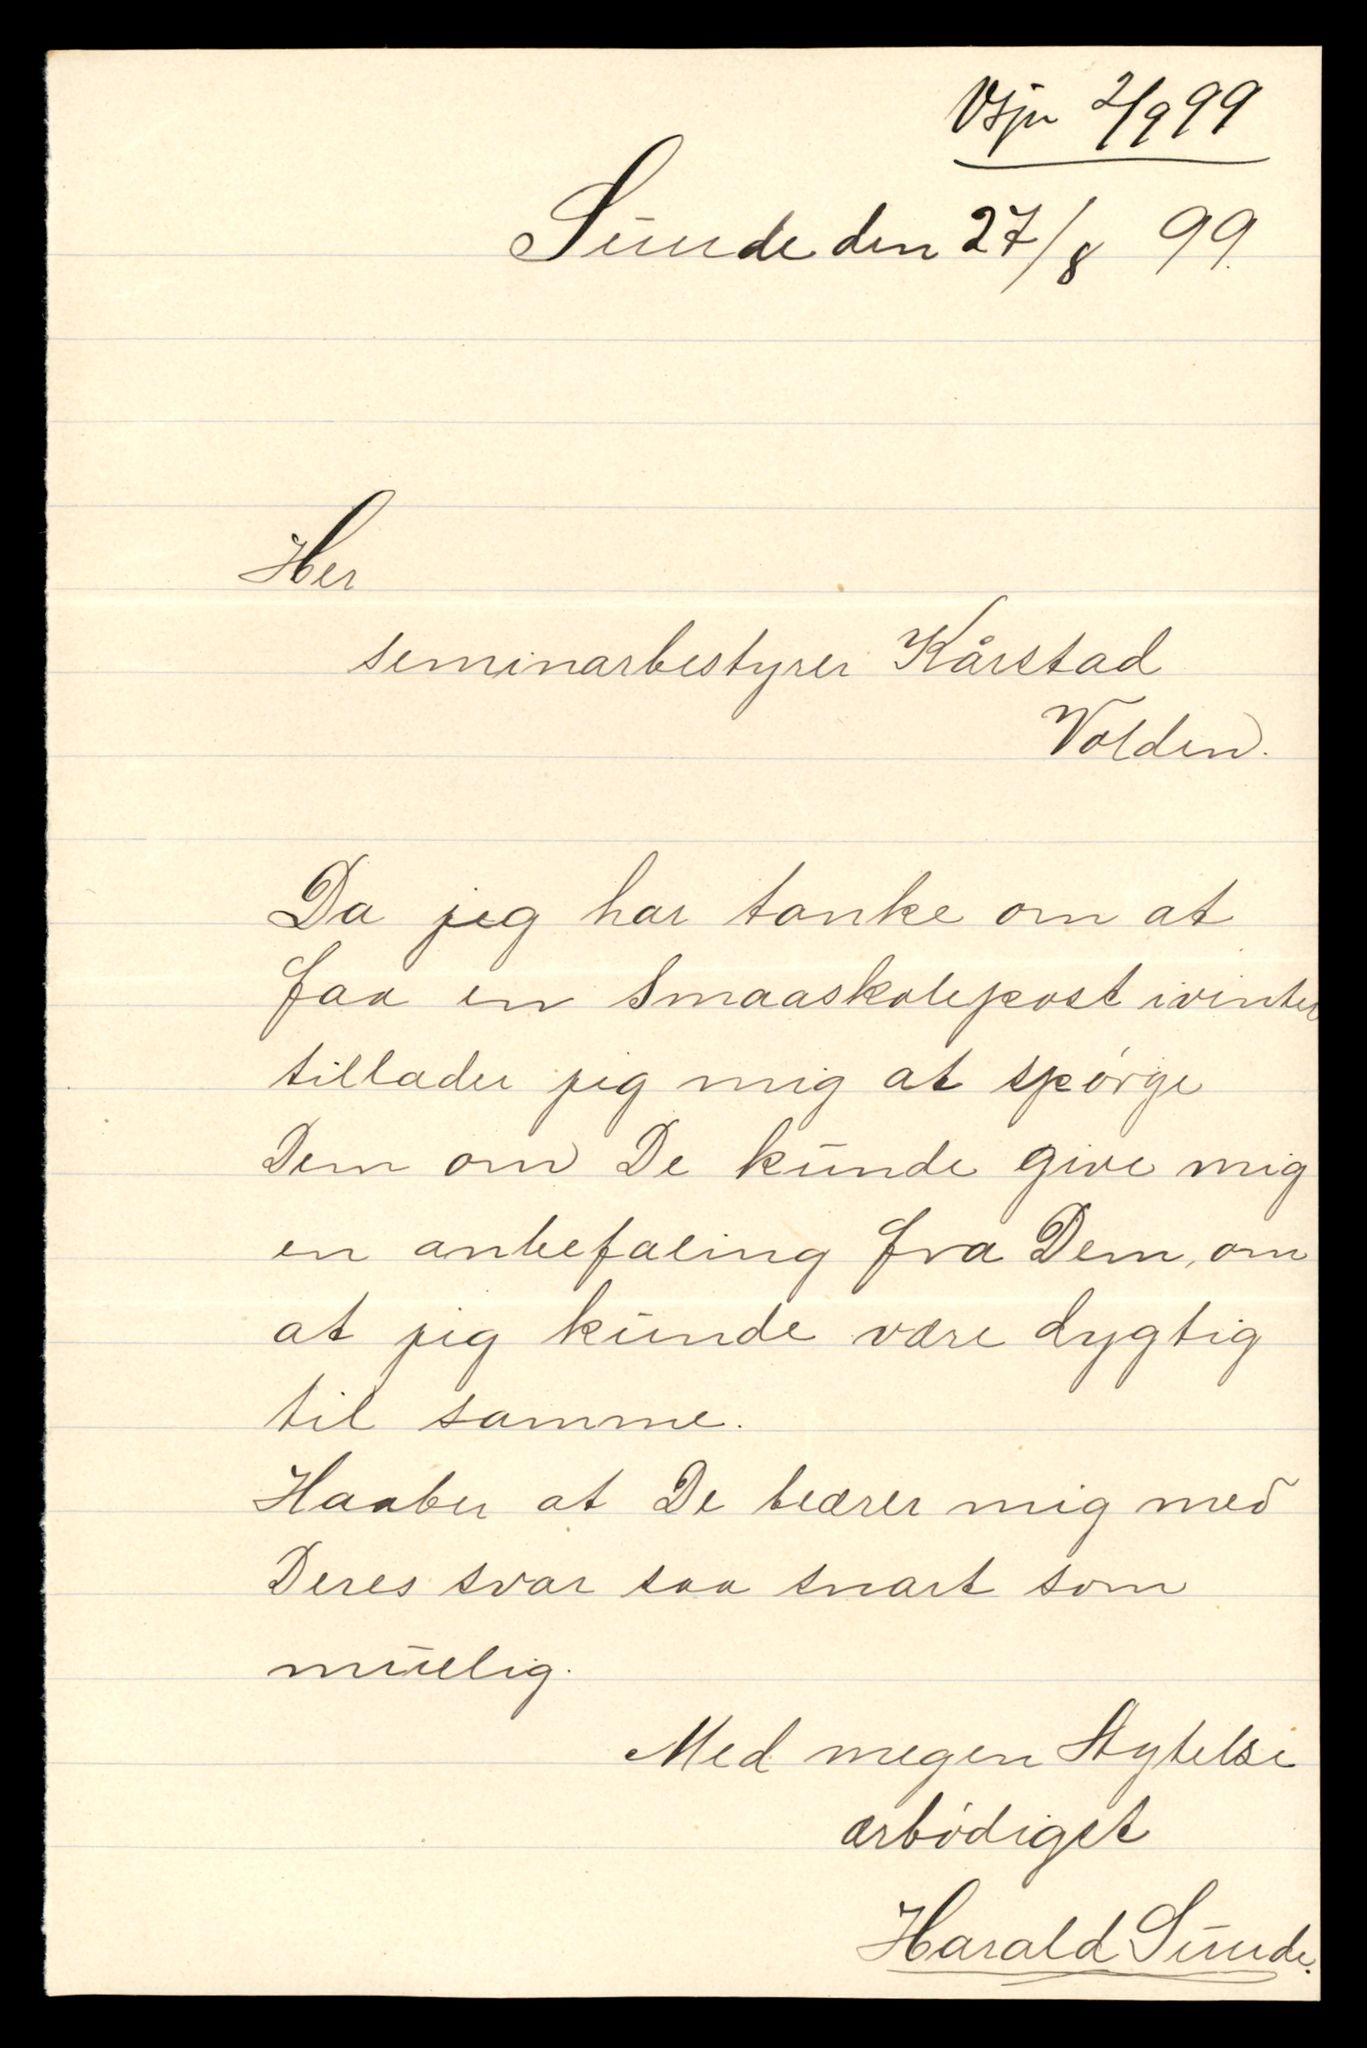 2/9 99
Sunde den 27/8 99.
Her
seminarbestyrer Kårstad
Volden.
Da jeg har tanke om at
faa en Smaaskolepost ivinter
tillader jeg mig at spørge
Dem om De kunde give mig
en anbefaling fra Dem, om
at jeg kunde være dygtig
til samme.
Haaber at De beærer mig med
Deres svar saa snart som
muelig.
Med megen
ærbødigst
Harald Sunde.